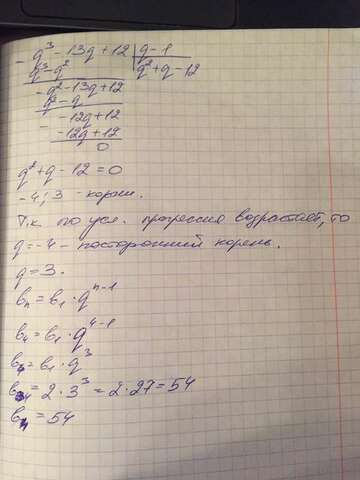 - q³ - 13q + 12 | q - 1
q³ - q² | q² + q - 12
- q² - 13q + 12
q² - q
- -12q + 12
-12q + 12
0
q² + q - 12 = 0
-4; 3 - корни.
Т.к по усл. прогрессия возрастает, то
q = -4 - посторонний корень.
q = 3.
bₙ = b₁ · qⁿ⁻¹
b₄ = b₁ · q⁴⁻¹
b₄ = b₁ · q³
b₄ = 2 · 3³ = 2 · 27 = 54
b₄ = 54